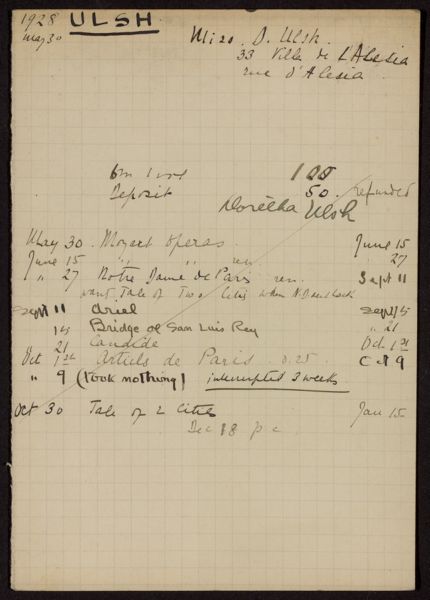 1928 ULSH
May 30 Miss. D. Ulsh.
33 Villa de L'Alesia
rue d'Alesia
6m 1 vol 100
Deposit 50. refunded
Dorétha Ulsh
May 30. Mozart operas June 15
June 15 " " ren " 27
" 27 Notre Dame de Paris ren. Sept 11
want Tale of Two Cities when
Sept 11 Ariel Sept 15
" 15 Bridge of San Luis Rey " 21
21 Candide Oct 1st
Oct 1st de Paris 0.25 Oct 9
" 9 (took nothing) interrupted 3 weeks
Oct 30 Tale of 2 Cities Jan 15
Dec 18 p c